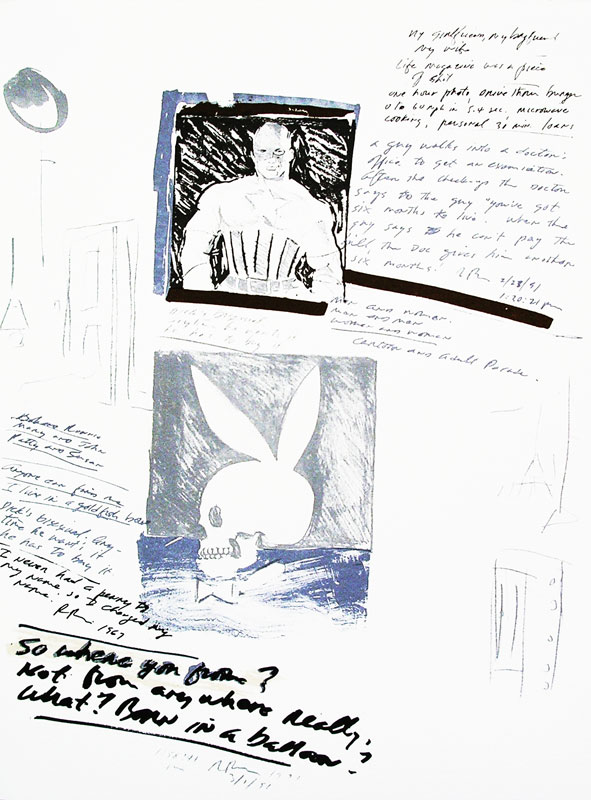 My girlfriend, my boyfriend
my wife
Life magazine was a piece
of shit
one hour photo, drive thru burger
0 to 60 mph in 5.4 sec. microwave
cooking, personal 30 min. loans
a guy walks into a doctor's
office to get an examination.
After the check-up the Doctor
says to the guy "you've got
six months to live". When the
guy says he can't pay the
bill the Doc gives him another
six months.
2/28/91
men and women.
man and man
women and women
Carlton and Adult Parade.
Mary and John
Patty and Susan
anyone can find me
I live in a goldfish bowl
Dick's bisexual. Any-
time he wants it
he has to buy it
I never had a penny to
my name so I changed my
name.
1987
So where you from?
Not from anywhere really,
what? Born in a balloon?